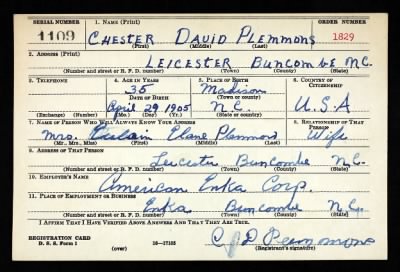 SERIAL NUMBER 1. NAME (Print) ORDER NUMBER
1109 CHESTER DAVID PLEMMONS 1829
(First) (Middle) (Last)
2. ADDRESS (Print)
LEICESTER BUNCOMBE N.C.
(Number and street or R. F. D. number) (Town) (County) (State)
3. TELEPHONE 4. AGE IN YEARS 5. PLACE OF BIRTH 6. COUNTRY OF CITIZENSHIP
35 Madison
DATE OF BIRTH (Town or county)
April 29 1905 N.C. U.S.A
(Exchange) (Number) (Mo.) (Day) (Yr.) (State or country)
7. NAME OF PERSON WHO WILL ALWAYS KNOW YOUR ADDRESS 8. RELATIONSHIP OF THAT PERSON
Mrs. Elane Plemmons Wife
(Mr., Mrs., Miss) (First) (Middle) (Last)
9. ADDRESS OF THAT PERSON
Leicester Buncombe N.C.
(Number and street or R. F. D. number) (Town) (County) (State)
10. EMPLOYER'S NAME
American Enka Corp.
11. PLACE OF EMPLOYMENT OR BUSINESS
Enka Buncombe N.C.
(Number and street or R. F. D. number) (Town) (County) (State)
I AFFIRM THAT I HAVE VERIFIED ABOVE ANSWERS AND THAT THEY ARE TRUE.
REGISTRATION CARD
D. S. S. Form 1 (over) 16—17105 (Registrant's signature)